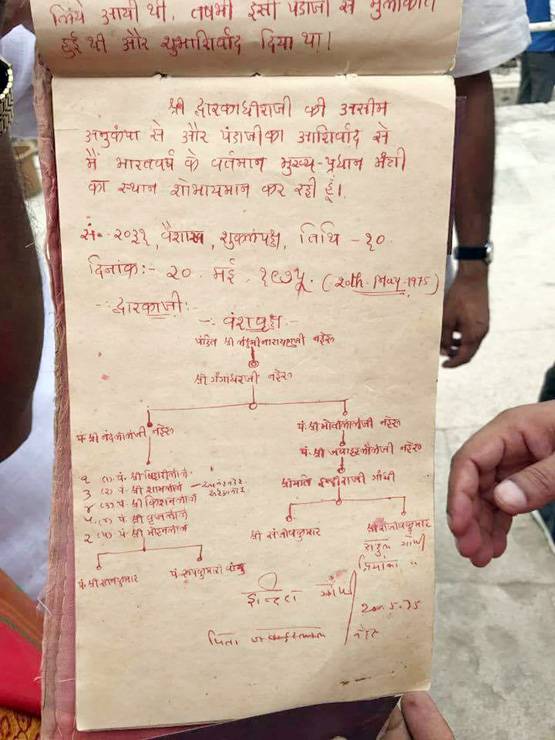 लिये आयी थी, तबभी इसी पंडाजी से मुलाकात
हुई थी और शुभाशिर्वाद दिया था।
श्री द्वारकाधीशजी की असीम
अनुकंपा से और पंडाजीका आशिर्वाद से
मैं भारतवर्ष के वर्तमान मुख्य-प्रधान मंत्री
का स्थान शोभायमान कर रही हूं।
सं. २०३१, वैशाख, शुक्लपक्ष, तिथि - १०
दिनांक:- २० मई, १९७५. (20th May-1975)
द्वारकाजी:
वंशवृक्ष
पंडित श्री लक्ष्मीनारायणजी नहेरु
श्री गंगाधरजी नहेरु
पं. श्री नंदलालजी नहेरु
पं. श्री मोतीलालजी नहेरु
पं. श्री जवाहरलालजी नहेरु
श्रीमति इन्दीराजी गांधी
१ (1) पं. श्री बिहारीलाल
३ (2) पं. श्री शामलाल
४ (3) पं. श्री किशनलाल
५ (4) पं. श्री
२ (5) पं. श्री मोहनलाल
श्री संजयकुमार
श्री राजीवकुमार
राहुल गाँधी
प्रियंका "
पं. श्री राजकुमार
पं.
इन्दिरा गाँधी
20.5.75
पिता